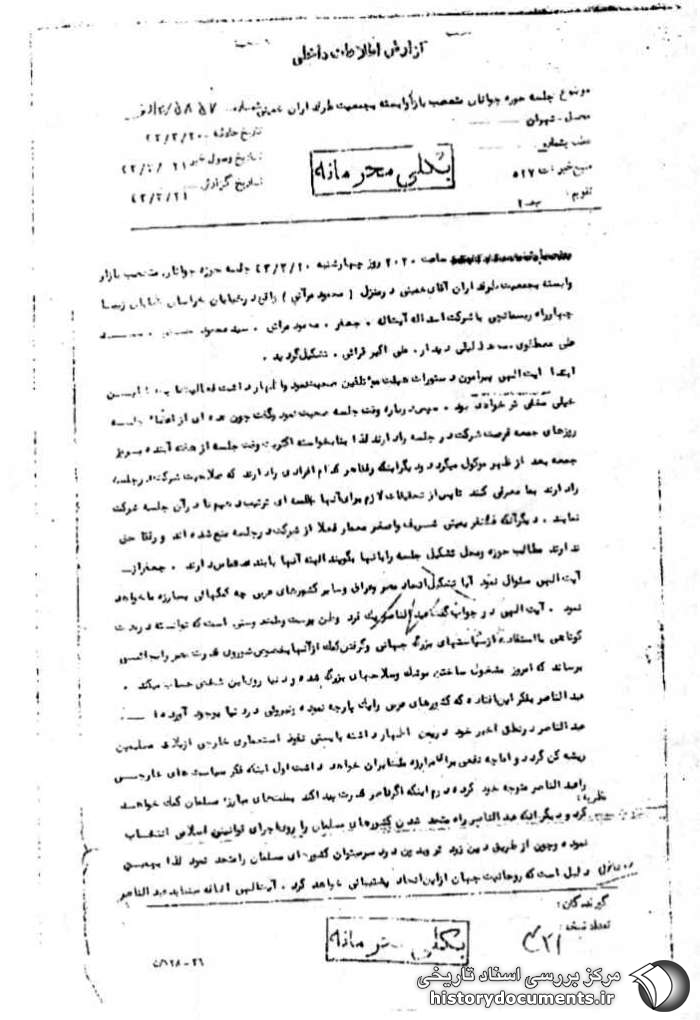 گزارش اطلاعات داخلی
موضوع جلسه حوزه جوانان متعصب بازار وابسته بجمعیت طرفداران خمینی شماره
محل - تهران تاریخ حادثه ۴۳/۳/۲۰
تاریخ وصول خبر
منبع خبر ۵۲۷ تاریخ گزارش ۴۳/۳/۲۱
تقویم : ب-۲
بکلی محرمانه
ساعت ۲۰۲۰ روز چهارشنبه ۴۳/۳/۲۰ جلسه حوزه جوانان متعصب بازار
وابسته بجمعیت طرفداران آقای خمینی در منزل ( محمود مرآتی ) واقع در خیابان خراسان خیابان زیبا
چهارراه ریسمانچی با شرکت اسداله آیتاله ، جعفر ، محمود مرآتی ، سید محمود
علی مصطفوی، دیدار، علی اکبر قرائی ، تشکیل گردید .
ابتدا آیت الهی پیرامون دستورات هیئت موتلفین صحبت نمود و اظهار داشت فعالیتها
خیلی مخفی تر خواهد بود . سپس درباره وقت جلسه صحبت نمود وگفت چون عده ای از اعضاء جلسه
روزهای جمعه فرصت شرکت در جلسه را دارند لذا بنا بخواسته اکثریت وقت جلسه از هفته آینده بروز
جمعه بعد از ظهر موکول میگردد ودیگر اینکه رفقا هر کدام افرادی را دارند که صلاحیت شرکت در جلسه
را دارند بما معرفی کنند تا پس از تحقیقات لازم برای آنها جلسه ای ترتیب دهیم تا در آن جلسه شرکت
نمایند . دیگر آنکه دو نفر یعنی شریف واصغر معمار فعلا از شرکت در جلسه منع شده اند و رفقا حق
ندارند مطالب حوزه ومحل تشکیل جلسه را بآنها بگویند البته آنها با بنده تماس دارند . جعفر از
آیت الهی سئوال نمود آیا تشکیل اتحاد مصر وعراق وسایر کشورهای عربی چه کمکهائی بمبارزه ما خواهد
نمود . آیت الهی در جواب گفت عبدالناصر یک فرد وطن پرست است که توانسته در مدت
کوتاهی با استفاده از سیاستهای بزرگ جهانی و گرفتن کمک از آنها بخصوص شوروی قدرت مصر را بجائی
برساند که امروز مشغول ساختن موشک وسلاحهای بزرگ شده و دنیا روی این شخص حساب میکند .
عبدالناصر بفکر این افتاده که کشورهای عربی را یک پارچه نموده ونیروئی در دنیا بوجود آورد
عبدالناصر در نطق اخیر خود در یمن اظهار داشته بایستی نفوذ استعماری خارجی از بلاد مسلمین
ریشه کن گردد و اما چه نفعی برای مبارزه ملت ایران خواهد داشت اول اینکه فکر سیاست های خارجی
را عبدالناصر متوجه خود کرده دوم اینکه اگر ناصر قدرت پیدا کند بملت های مبارز مسلمان کمک خواهد
نظریه :
کرد و دیگر آنکه عبدالناصر راه متحد شدن کشورهای مسلمان را روی اجرای قوانین اسلامی انتخاب
نموده وچون از طریق دین زودتر میتوان کشورهای مسلمان را متحد نمود لذا بهمین
دلیل است که روحانیت جهان از این اتحاد پشتیبانی خواهد کرد . آیت الهی اضافه عبدالناصر
گیرندگان :
تعداد نسخه :
۴۲۱
بکلی محرمانه
مرکز بررسی اسناد تاریخی
historydocuments.ir